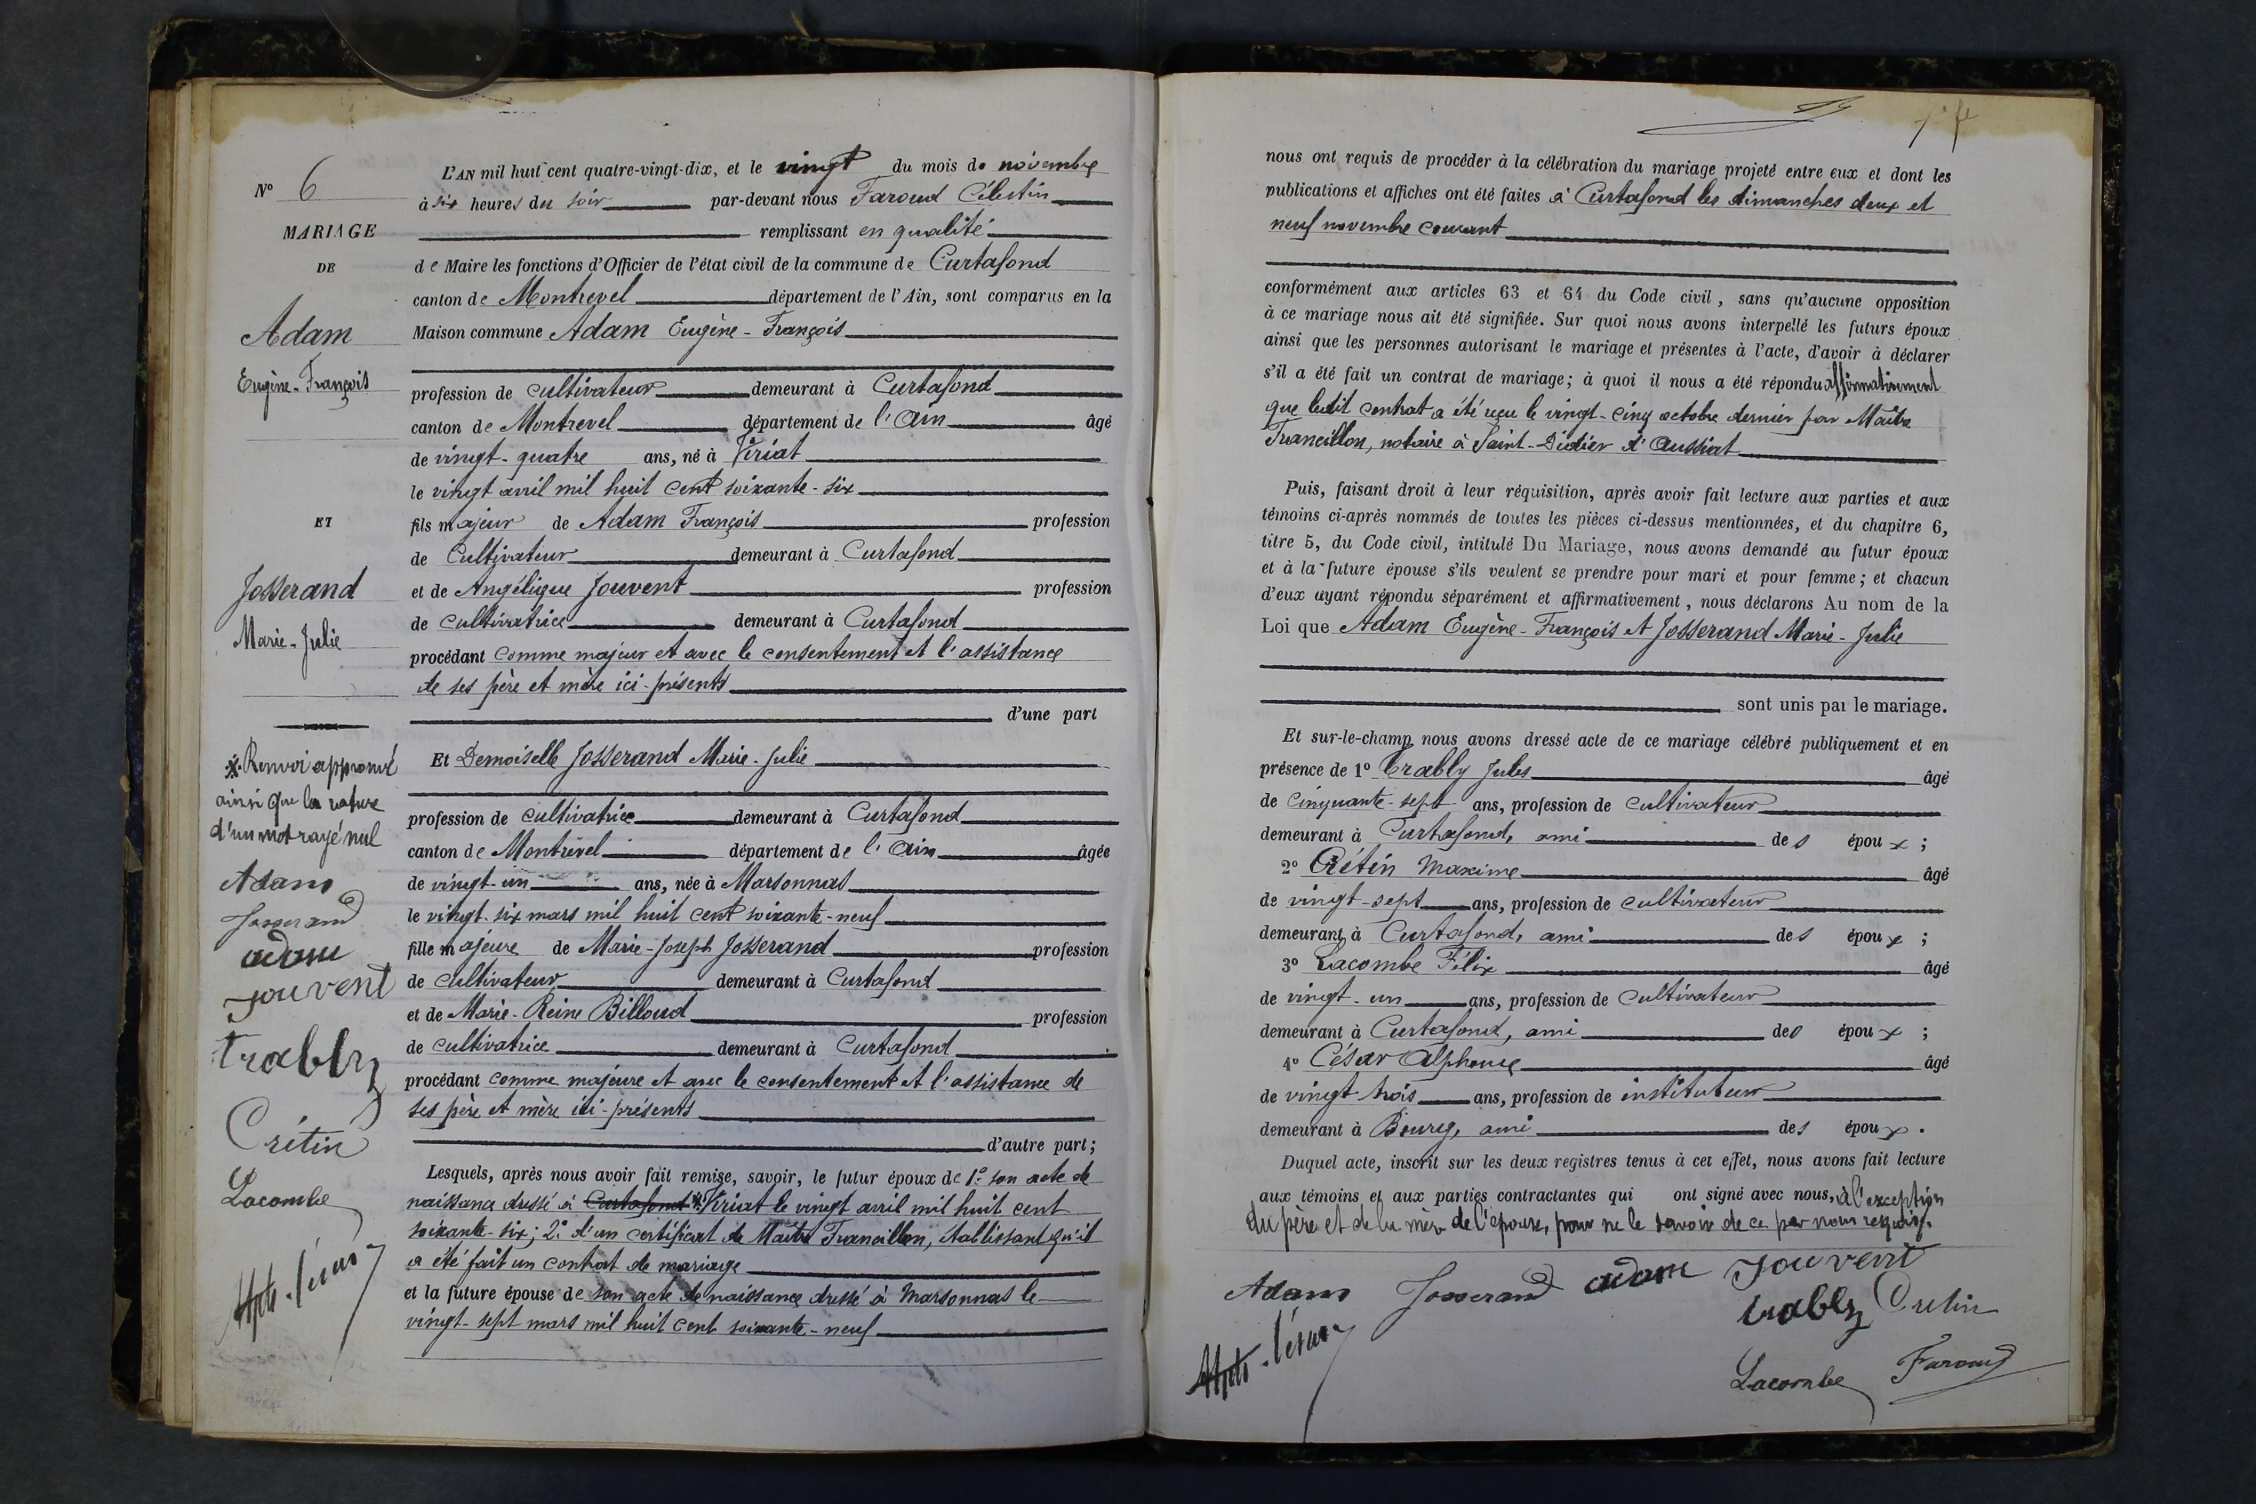 N° 6
MARIAGE
DE
Adam
Eugène-François
ET
Josserand
Marie-Julie
※ Renvoi approuvé
ainsi que la rature
d'un mot rayé nul
Adam
Josserand
adam
Jouvent
trably
Crétin
Lacombe
L'AN mil huit cent quatre-vingt-dix, et le vingt du mois de novembre
à six heures du soir par-devant nous Faroud Célestin
remplissant en qualité
de Maire les fonctions d'Officier de l'état civil de la commune de Curtafond
canton de Montrevel département de l'Ain, sont comparus en la
Maison commune Adam Eugène-François
profession de cultivateur demeurant à Curtafond
canton de Montrevel département de l'Ain âgé
de vingt-quatre ans, né à Viriat
le vingt avril mil huit cent soixante-six
fils majeur de Adam François profession
de Cultivateur demeurant à Curtafond
et de Angélique Jouvent profession
de cultivatrice demeurant à Curtafond
procédant comme majeur et avec le consentement et l'assistance
de ses père et mère ici-présents
d'une part
Et Demoiselle Josserand Marie-Julie
profession de cultivatrice demeurant à Curtafond
canton de Montrevel département de l'Ain âgée
de vingt-un ans, née à Marsonnas
le vingt-six mars mil huit cent soixante-neuf
fille majeure de Marie-Joseph Josserand profession
de cultivateur demeurant à Curtafond
et de Marie-Reine Billoud profession
de cultivatrice demeurant à Curtafond
procédant comme majeure et avec le consentement et l'assistance de
ses père et mère ici-présents
d'autre part;
Lesquels, après nous avoir fait remise, savoir, le futur époux de 1° son acte de
naissance dressé à Curtafond ※ Viriat le vingt avril mil huit cent
soixante-six; 2° d'un certificat de Maître Francillon, établissant qu'il
a été fait un contrat de mariage
et la future épouse de son acte de naissance dressé à Marsonnas le
vingt-sept mars mil huit cent soixante-neuf
nous ont requis de procéder à la célébration du mariage projeté entre eux et dont les
publications et affiches ont été faites à Curtafond les dimanches deux et
neuf novembre courant
conformément aux articles 63 et 64 du Code civil, sans qu'aucune opposition
à ce mariage nous ait été signifiée. Sur quoi nous avons interpellé les futurs époux
ainsi que les personnes autorisant le mariage et présentes à l'acte, d'avoir à déclarer
s'il a été fait un contrat de mariage; à quoi il nous a été répondu affirmativement
que ledit contrat a été reçu le vingt-cinq octobre dernier par Maître
Francillon, notaire à Saint-Didier d'Aussiat
Puis, faisant droit à leur réquisition, après avoir fait lecture aux parties et aux
témoins ci-après nommés de toutes les pièces ci-dessus mentionnées, et du chapitre 6,
titre 5, du Code civil, intitulé Du Mariage, nous avons demandé au futur époux
et à la future épouse s'ils veulent se prendre pour mari et pour femme; et chacun
d'eux ayant répondu séparément et affirmativement, nous déclarons Au nom de la
Loi que Adam Eugène-François et Josserand Marie-Julie
sont unis par le mariage.
Et sur-le-champ nous avons dressé acte de ce mariage célébré publiquement et en
présence de 1° Trably Jules âgé
de cinquante-sept ans, profession de cultivateur
demeurant à Curtafond, ami des époux;
2° Crétin Maxime âgé
de vingt-sept ans, profession de cultivateur
demeurant à Curtafond, ami des époux;
3° Lacombe Félix âgé
de vingt-un ans, profession de cultivateur
demeurant à Curtafond, ami des époux;
4° César Alphonse âgé
de vingt-trois ans, profession de instituteur
demeurant à Bourg, ami des époux.
Duquel acte, inscrit sur les deux registres tenus à cet effet, nous avons fait lecture
aux témoins et aux parties contractantes qui ont signé avec nous, à l'exception
du père et de la mère de l'épouse, pour ne le savoir de ce par nous requis.
Adam Josserand adam Jouvent
trably Cretin
Lacombe Faroud